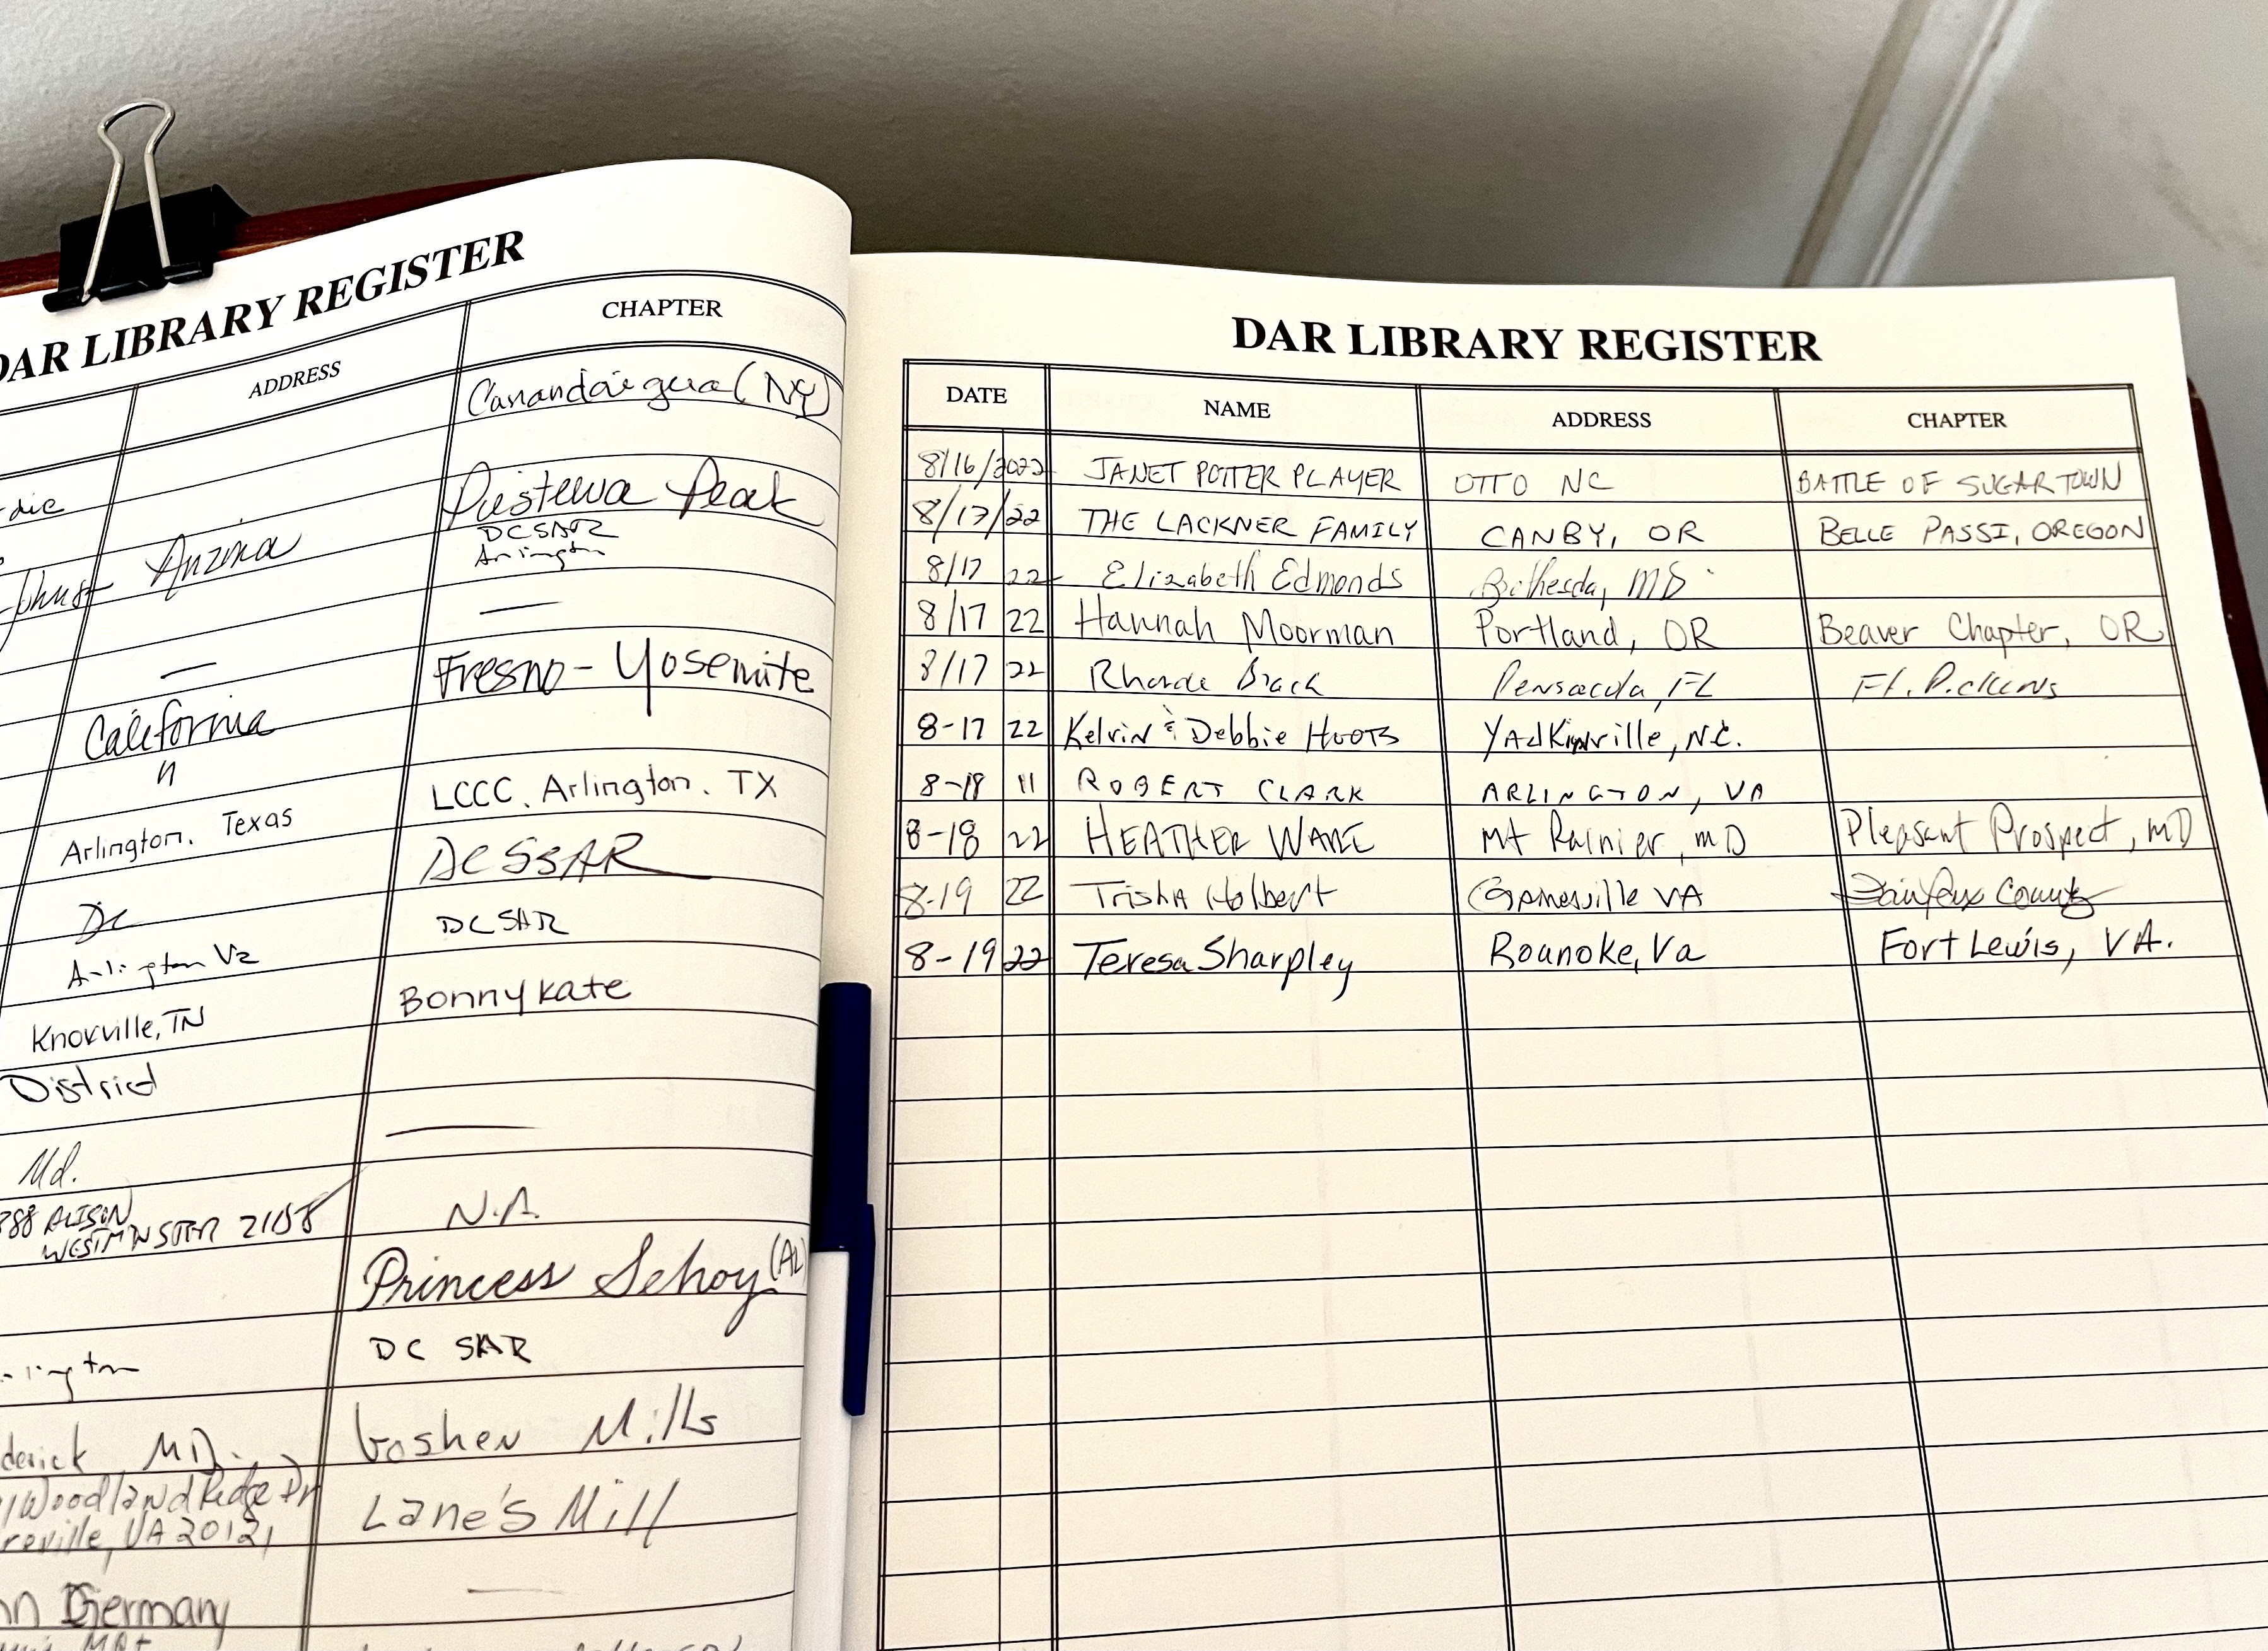 DAR LIBRARY REGISTER
ADDRESS CHAPTER
Canandaigua (NY)
die
Piestewa Peak
Arizona
DCSAR
Arlington
—
— Fresno-Yosemite
California
"
Arlington, Texas LCCC, Arlington, TX
DC DCSSAR
Arlington Va DCSAR
Knoxville, TN Bonny Kate
District
—
Md.
388 ALISON
WESTMINSTER 21158 N.A.
Princess Sehoy (AL)
lington DC SAR
derick MD. Goshen Mills
Woodland Ridge Dr
reville, VA 20121 Lane's Mill
Germany —
DAR LIBRARY REGISTER
DATE NAME ADDRESS CHAPTER
8/16/2022 JANET POTTER PLAYER OTTO NC BATTLE OF SUGARTOWN
8/17/22 THE LACKNER FAMILY CANBY, OR BELLE PASSI, OREGON
8/17 22 Elizabeth Edmonds Bethesda, MD
8/17 22 Hannah Moorman Portland, OR Beaver Chapter, OR
8/17 22 Pensacola, FL Ft. Pickens
8-17 22 Kelvin & Debbie Hoots Yadkinville, N.C.
8-18 11 ROBERT CLARK ARLINGTON, VA
8-18 22 HEATHER WARE Mt Rainier, MD Pleasant Prospect, MD
8-19 22 Trisha Holbert Gainesville VA Fairfax County
8-19 22 Teresa Sharpley Roanoke, Va Fort Lewis, VA.